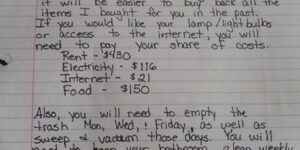 it will be easier to buy back all the
items I bought for you in the past.
If you would like your lamp/light bulbs
or access to the internet, you will
need to pay your share of costs.
Rent - $430
Electricity - $116
Internet - $21
Food - $150
Also, you will need to empty the
trash Mon, Wed, + Friday, as well as
sweep & vacuum those days. You will
need to keep your bathroom clean weekly